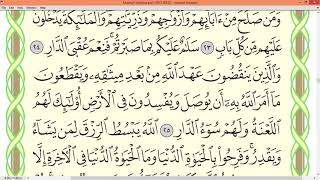 وَمَن صَلَحَ مِنْ ءَابَآئِهِمْ وَأَزْوَٰجِهِمْ وَذُرِّيَّـٰتِهِمْ وَٱلْمَلَـٰٓئِكَةُ يَدْخُلُونَ
عَلَيْهِم مِّن كُلِّ بَابٍ ٢٣ سَلَـٰمٌ عَلَيْكُم بِمَا صَبَرْتُمْ فَنِعْمَ عُقْبَى ٱلدَّارِ ٢٤
وَٱلَّذِينَ يَنقُضُونَ عَهْدَ ٱللَّهِ مِنۢ بَعْدِ مِيثَـٰقِهِۦ وَيَقْطَعُونَ
مَآ أَمَرَ ٱللَّهُ بِهِۦٓ أَن يُوصَلَ وَيُفْسِدُونَ فِى ٱلْأَرْضِ أُو۟لَـٰٓئِكَ لَهُمُ
ٱللَّعْنَةُ وَلَهُمْ سُوٓءُ ٱلدَّارِ ٢٥ ٱللَّهُ يَبْسُطُ ٱلرِّزْقَ لِمَن يَشَآءُ
وَيَقْدِرُ وَفَرِحُوا۟ بِٱلْحَيَوٰةِ ٱلدُّنْيَا وَمَا ٱلْحَيَوٰةُ ٱلدُّنْيَا فِى ٱلْـَٔاخِرَةِ إِلَّا